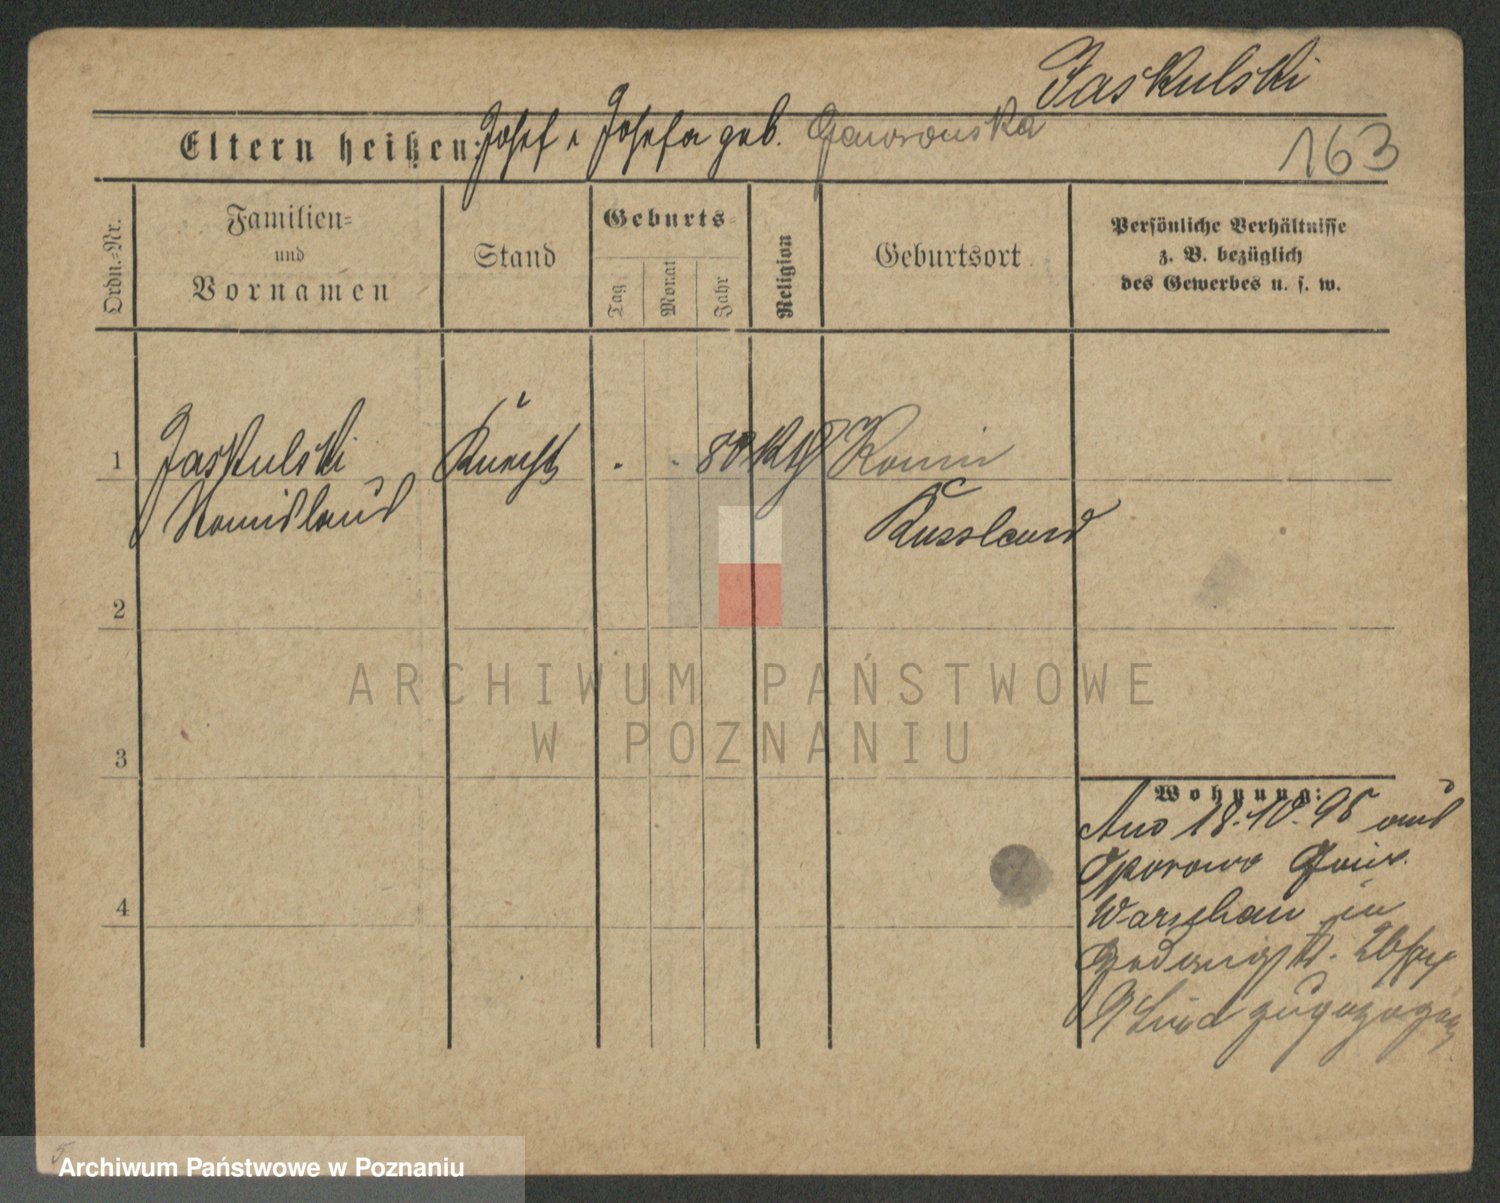 Jaskulski
Eltern heißen: Josef u Josefa geb. Gaworonska
163
Ordn.-Nr.
Familien-
und
Vornamen
Stand
Geburts-
Tag
Monat
Jahr
Religion
Geburtsort
Persönliche Verhältnisse
z. B. bezüglich
des Gewerbes u. s. w.
1 Jaskulski Knecht . . 80 Kth Konin
Stanislaus Russland
2
3
4
Wohnung:
18.10.95 aus
Oporowo
Warschau in
zugezogen
ARCHIWUM PAŃSTWOWE
W POZNANIU
5
Archiwum Państwowe w Poznaniu